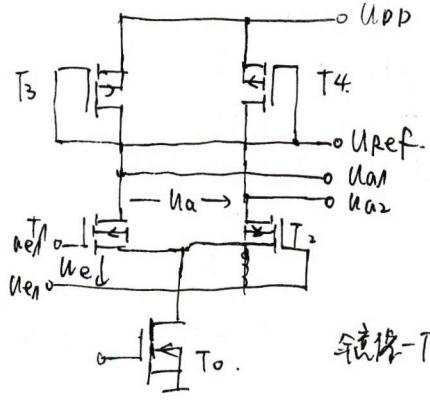 UDD
T3
T4.
URef.
ua1
ua2
Ua
T
T2
ue1
Ued
ue1
T0.